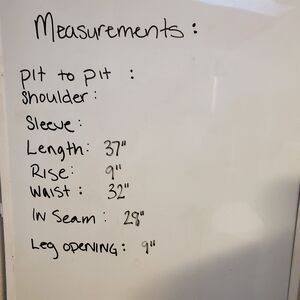 Measurements:
pit to pit :
shoulder:
Sleeve:
Length: 37"
Rise: 9"
waist: 32"
IN Seam: 28"
Leg OPENING: 9"